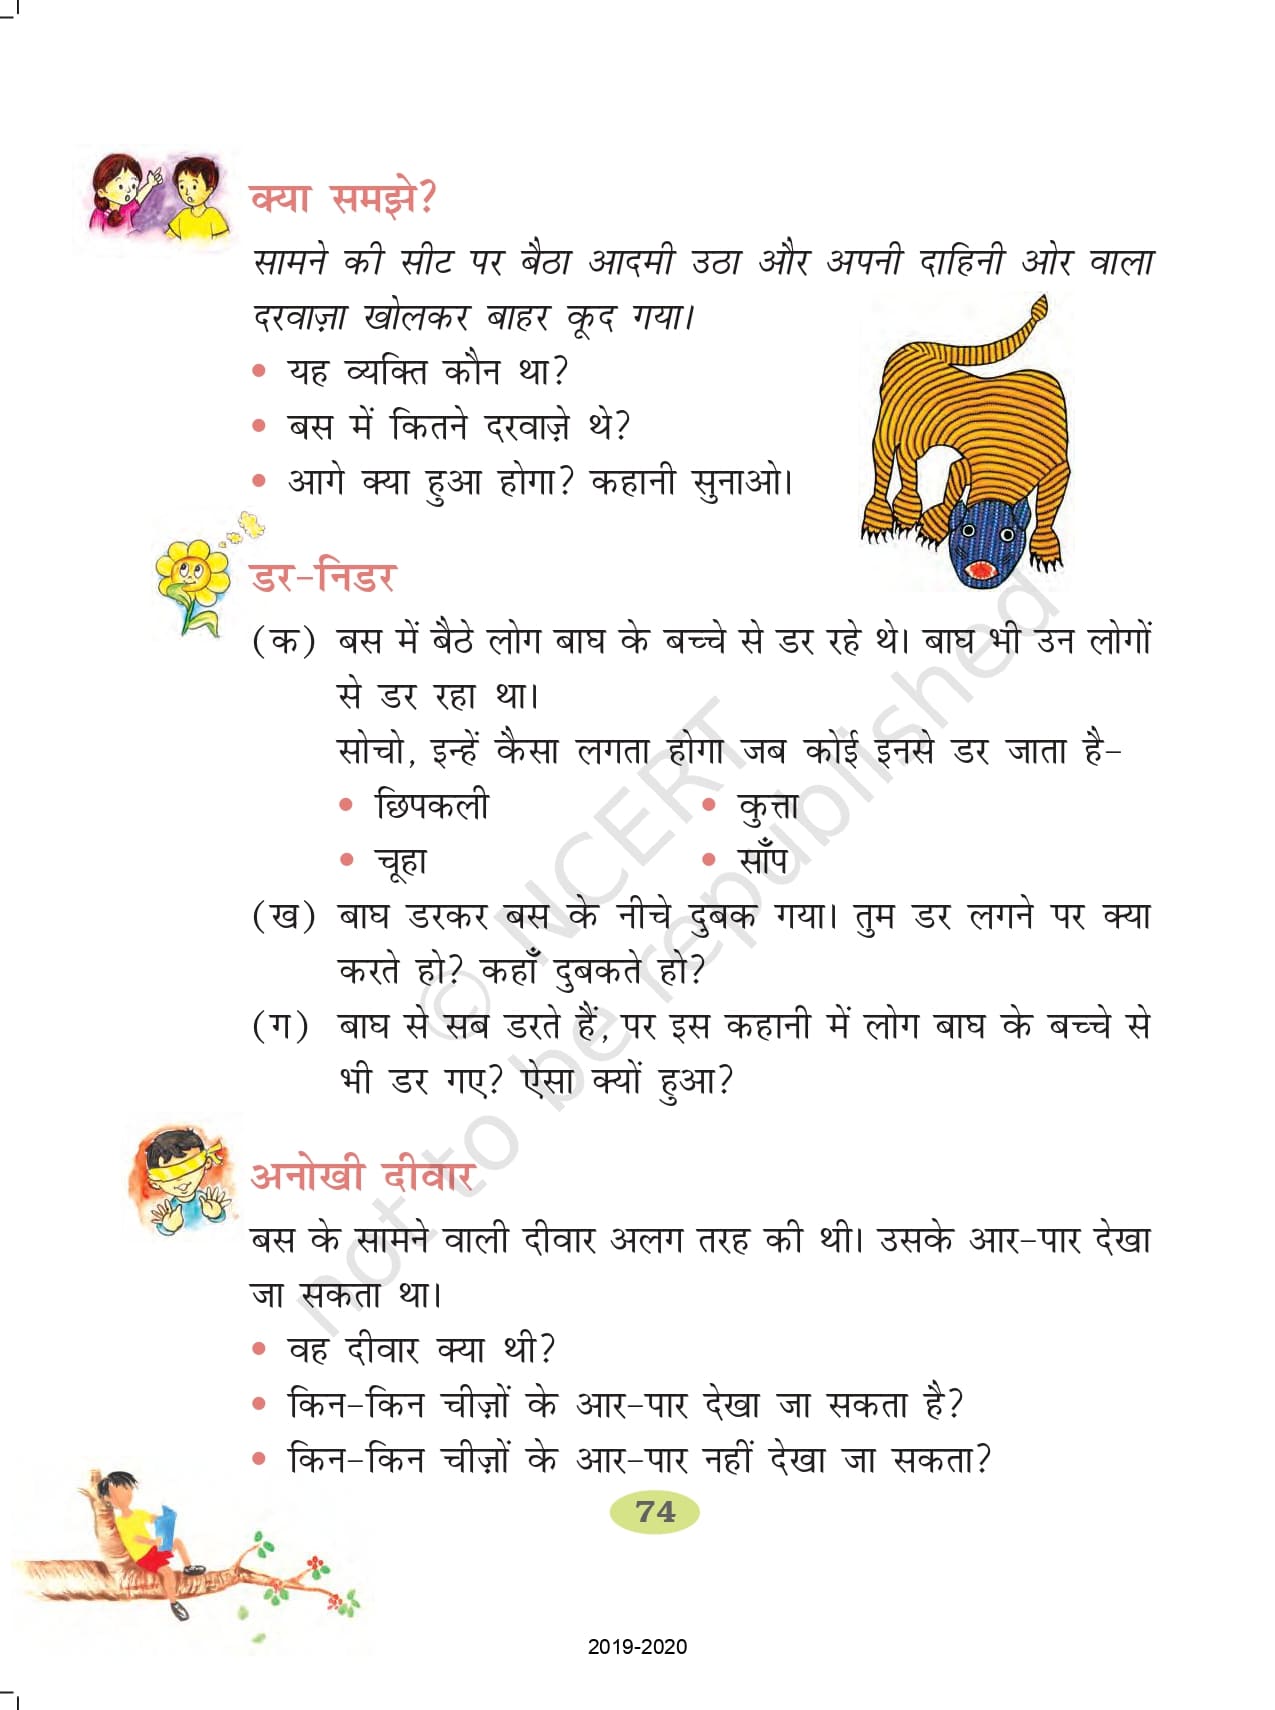 क्या समझे?
सामने की सीट पर बैठा आदमी उठा और अपनी दाहिनी ओर वाला
दरवाज़ा खोलकर बाहर कूद गया।
• यह व्यक्ति कौन था?
• बस में कितने दरवाज़े थे?
• आगे क्या हुआ होगा? कहानी सुनाओ।
डर-निडर
(क) बस में बैठे लोग बाघ के बच्चे से डर रहे थे। बाघ भी उन लोगों
से डर रहा था।
सोचो, इन्हें कैसा लगता होगा जब कोई इनसे डर जाता है-
• छिपकली • कुत्ता
• चूहा • साँप
(ख) बाघ डरकर बस के नीचे दुबक गया। तुम डर लगने पर क्या
करते हो? कहाँ दुबकते हो?
(ग) बाघ से सब डरते हैं, पर इस कहानी में लोग बाघ के बच्चे से
भी डर गए? ऐसा क्यों हुआ?
अनोखी दीवार
बस के सामने वाली दीवार अलग तरह की थी। उसके आर-पार देखा
जा सकता था।
• वह दीवार क्या थी?
• किन-किन चीज़ों के आर-पार देखा जा सकता है?
• किन-किन चीज़ों के आर-पार नहीं देखा जा सकता?
74
2019-2020
© NCERT
not to be republished